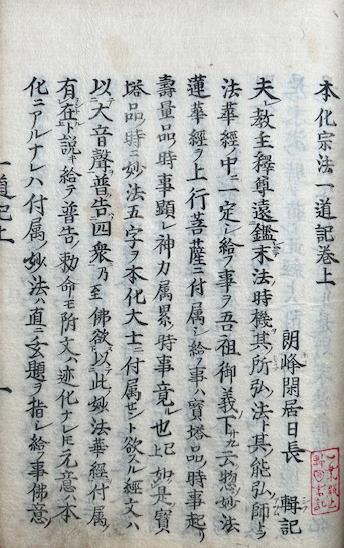 本化宗法一道記巻上
朗峰閑居日長 輯記
夫レ教主釋尊遠鑑末法時機其所弘ノ法ト其ノ能弘ノ師トヲ
法華經ノ中ニ一定シ給フ事ヲ吾祖御義下九云惣妙法
蓮華經ヲ上行菩薩ニ付属シ給フ事ハ寳塔品ノ時事起リ
壽量品ノ時事顕レ神力属累ノ時事竟ル也記如是寳
塔品ノ時ニ妙法五字ヲ本化ノ大士ニ付属セント欲スル經文ハ
以大音聲普告四衆乃至佛欲以此妙法華經付属
有在ト説キ給テ普告ノ勅命モ附文ハ迹化ナレトモ元意ハ本
化ニアルナレハ付属ノ妙法ハ直ニ玄題ヲ指シ給フ事佛意ノ
一道記上 一